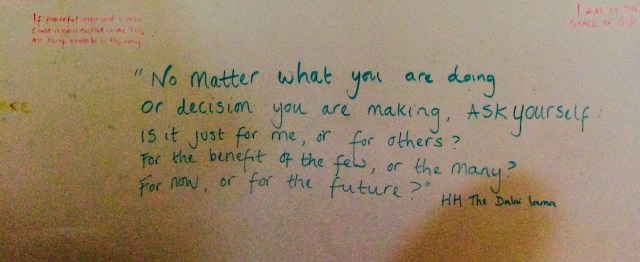 I AM BY THE
GRACE OF GOD
"No Matter what you are doing
or decision you are making, ASK yourself:
IS it just for me, or for others?
For the benefit of the few, or the many?
For now, or for the future?"
HH The Dalai lama